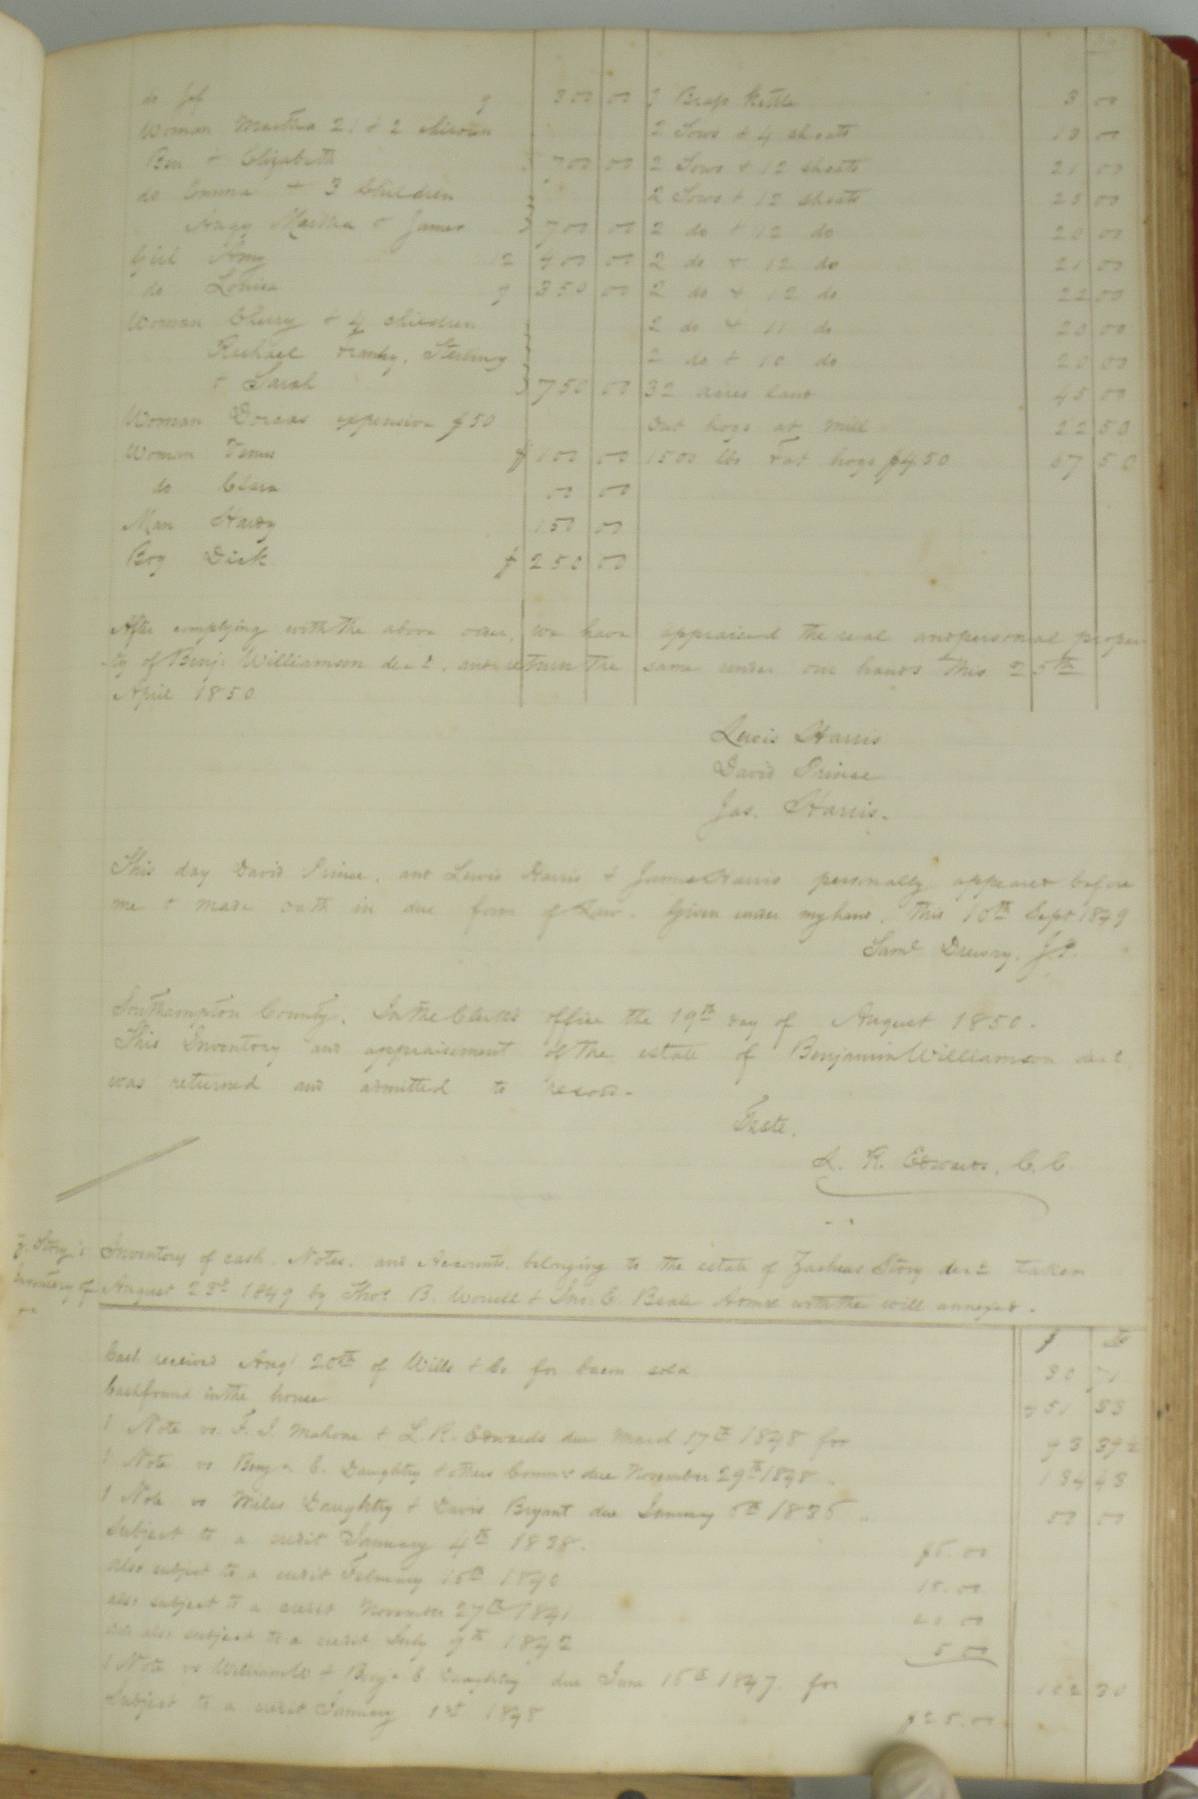 do Jef 9 300 00
Woman Martha 21 & 2 children
Ben & Elizabeth 700 00
do Emma & 3 Children
Angy Martha & James 700 00
Girl Amy 12 400 00
do Louisa 9 350 00
Woman Cherry & 4 children
Rachael Franky, Sterling
& Sarah 750 00
Woman Dorcas expensive $50
Woman Venus $ 100 00
do Clara 00 00
Man Hardy 150 00
Boy Dick $ 250 00
1 Brass Kettle 3 00
2 Sows & 4 shoats 13 00
2 Sows & 12 shoats 21 00
2 Sows & 12 shoats 25 00
2 do & 12 do 20 00
2 do & 12 do 21 00
2 do & 12 do 22 00
2 do & 11 do 20 00
2 do & 10 do 20 00
32 acres land 45 00
Out hogs at mill 22 50
1500 lbs Fat hogs $4.50 67 50
After complying with the above order, we have appraised the real and personal proper-
ty of Benj: Williamson dec'd, and return the same under our hands this 25th
April 1850
Lewis Harris
David Prince
Jas. Harris.
This day David Prince, and Lewis Harris & James Harris personally appeared before
me & made oath in due form of Law. Given under my hand, this 10th Sept 1849
Saml Drewry, J.P.
Southampton County. In the Clerk's office the 19th day of August 1850.
This Inventory and appraisement of the estate of Benjamin Williamson dec'd,
was returned and admitted to record.
Teste,
L. R. Edwards, C.C.
Z. Story's
Inventory of
Inventory of cash, Notes, and Accounts, belonging to the estate of Zacheus Story dec'd taken
August 23d 1849 by Thos B. Worrell & Jno. E. Beale Admrs with the will annexed.
Cash received Aug't 20th of Wills & Co for bacon sold 30 71
Cash found in the house 51 33
1 Note vs. F. J. Mahone & L. R. Edwards due March 17th 1848 for 93 39
1 Note vs Benja C. Daughtry & others Comr's due November 29th 1848. 134 43
1 Note vs Miles Daughtry & Davis Bryant due January 6th 1836 00 00
Subject to a credit January 4th 1838. $6.00
also subject to a credit February 15th 1840 15.00
also subject to a credit November 27th 1841 20 00
also subject to a credit July 9th 1842 5 00
1 Note vs William W & Benja C Daughtry due June 16th 1847 for 102 30
Subject to a credit January 1st 1848 $25.00